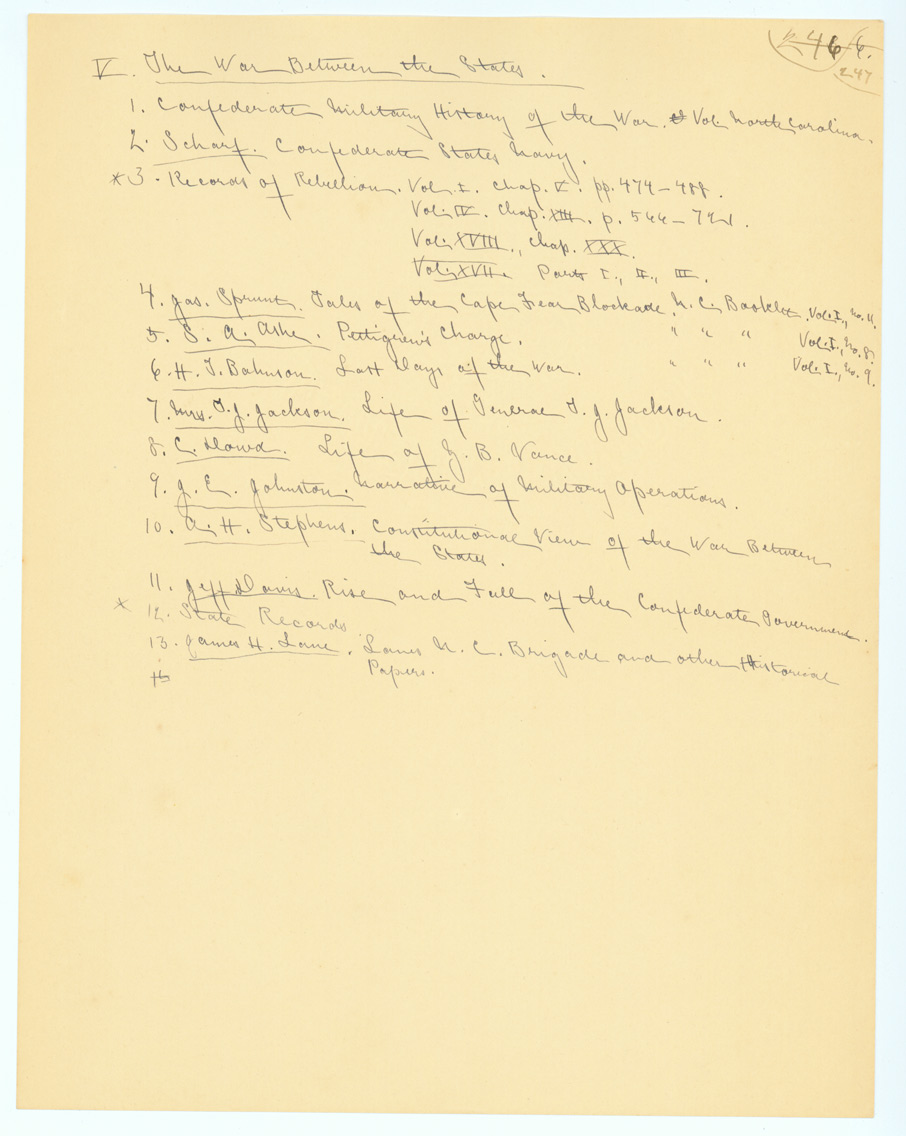 246 6.
247
V. The War Between the States.
1. Confederate Military History of the War. Vol. North Carolina.
2. Scharf. Confederate States Navy.
*3. Records of Rebellion. Vol. I. Chap. V. pp. 474–488.
Vol. IV. Chap. XIII. p. 544–721.
Vol. XVIII., Chap. XXX.
Vol. XVII. Parts I., II., III.
4. Jas. Sprunt. Tales of the Cape Fear Blockade. N. C. Booklet. Vol. I., no. 11.
5. S. A. Ashe. Pettigrew's Charge. " " " Vol. I., no. 8.
6. H. T. Bahnson. Last Days of the War. " " " Vol. I., no. 9.
7. Mrs. T. J. Jackson. Life of General T. J. Jackson.
8. C. Dowd. Life of Z. B. Vance.
9. J. E. Johnston. Narrative of Military Operations.
10. A. H. Stephens. Constitutional View of the War Between
the States.
11. Jeff Davis. Rise and Fall of the Confederate Government.
x 12. State Records
13. James H. Lane. Lanes N. C. Brigade and other Historical
Papers.